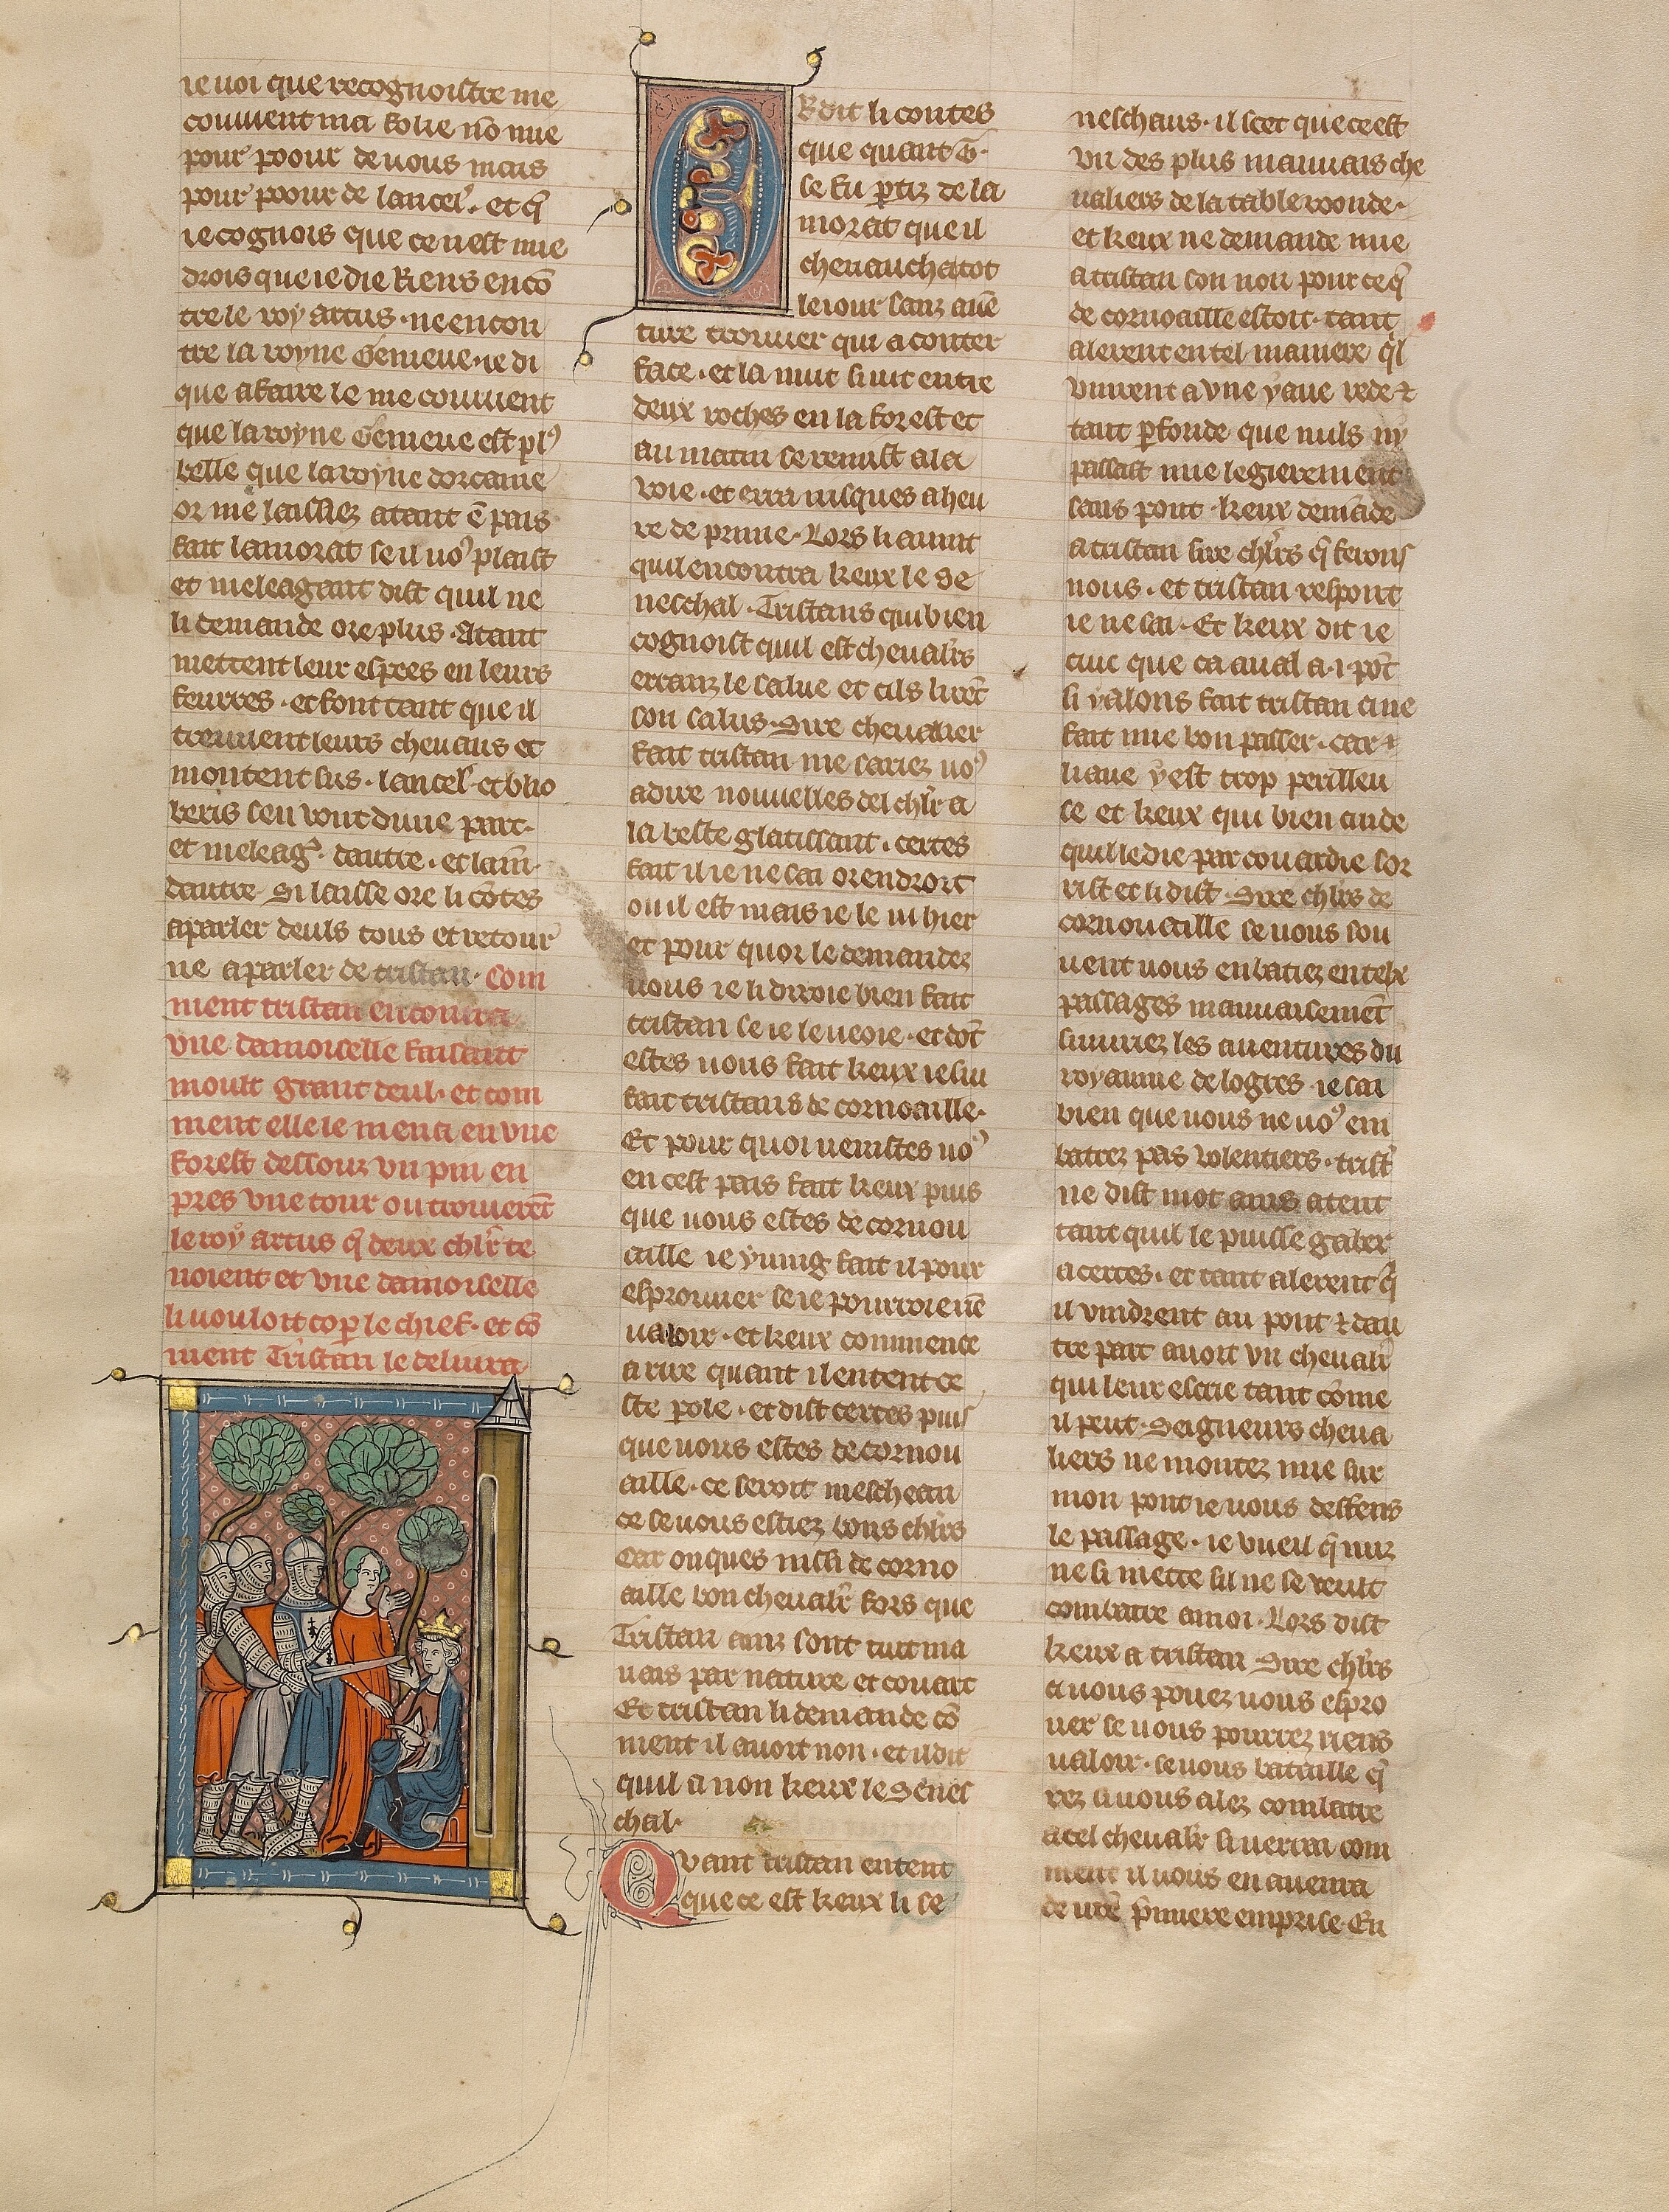 ie uoi que recognoistre me
couuient ma folie nō mie
pour poour de uous mais
pour poour de lancel'. et q̄
ie cognois que ce nest mie
drois que ie die riens encō
tre le roy artus. ne encon
tre la royne Genieue. ie di
que a faire le me couuient
que la royne Genieue est pl'
belle que la royne dorcanie
or me laissiez atant ē pais
fait lamorat se il uo' plaist
et meleagant dist quil ne
li demande ore plus. Atant
mettent leur espees en leurs
feurres. et font tant que il
treuuent leurs cheuaus et
montent sus. lancel' et blio
beris sen vont dune part.
et meleag'. dautre. et lam̄.
dautre. Si laisse ore li cōtes
a parler deuls tous et retour
ne a parler de tristan. Com
ment tristan encontra
vne damoiselle faisant
moult grant deul. et com
ment elle le mena en vne
forest dessouz vn pin en
pres vne tour ou trouuerēt
le roy artus q̄ deux chlr̄ te
noient et vne damoiselle
li vouloit coper le chief. et cō
ment Tristan le deliura
OR dit li contes
que quant t̄.
se fu ꝑtiz de la
morat que il
cheuaucha tot
le iour sanz auē
ture trouuer qui a conter
face. et la nuit si iut entre
deux roches en la forest et
au matin se remist a la
voie. et erra iusques a heu
re de prime. Lors li auint
quil encontra keux le se
neschal. Tristans qui bien
cognoist quil est cheualr̄s
erranz le salue et cils li rēt
son salus. Sire cheualier
fait tristan me sariez uo'
a dire nouuelles del chlr̄ a
la beste glatissant. certes
fait il ie ne sai orendroit
ou il est mais ie le ui hier
et pour quoi le demandez
uous ie li diroie bien fait
tristan se ie le ueoie. et dōt
estes uous fait keux ie sui
fait tristans de cornoaille.
Et pour quoi uenistes uo'
en cest pais fait keux puis
que uous estes de cornou
aille ie y uing fait il pour
esprouuer se ie pourroie riē
ualoir. et keux commence
a rire quant il entent ce
ste ꝑole. et dist certes puis
que uous estes de cornou
aille. ce seroit meschean
ce se uous estiez bons chlr̄s
Car onques nissi de corno
aille bon cheualr̄ fors que
Tristan ainz sont tuit ma
uais par nature et couart
Et tristan li demande cō
ment il auoit non. et il dit
quil a non keux le Senes
chal.
Quant tristan entent
que ce est keux li se
neschaus. il scet que ce est
vn des plus mauuais che
ualiers de la table roonde.
et keux ne demande mie
a tristan son non pour ce q̄
de cornoaille estoit. tant
alerent en tel maniere q̄l
vinrent a vne yaue rede ⁊
tant ꝑfonde que nuls ny
passast mie legierement
sans pont. keux demāde
a tristan sire chlr̄s q̄ ferons
nous. et tristan respont
ie ne sai. Et keux dit ie
cuic que ca aual a .i. pōt
si y alons fait tristan ci ne
fait mie bon passer. car
liaue y est trop perilleu
se et keux qui bien cuide
quil le die par couardie sor
rist et li dist. Sire chlr̄s de
cornouaille se uous sou
uent uous enbatiez en telx
passages mauuaisemēt
siuuriez les auentures du
royaume de logres. ie sai
bien que uous ne uo' em
batez pas volentiers. trist'
ne dist mot ains atent
tant quil le puisse gaber
a certes. et tant alerent q̄
il vindrent au pont ⁊ dau
tre part auoit vn cheualr̄
qui leur escrie tant cōme
il peut. Seigneurs cheua
liers ne montez mie sur
mon pont ie uous deffens
le passage. ie vueil q̄ nuz
ne si mette sil ne se veult
combatre a moi. Lors dist
keux a tristan Sire chlr̄s
ci uous pouez uous espro
uer se uous pourrez riens
ualoir. se uous bataille q̄
rez si uous alez combatre
a cel cheualr̄ si uerrai com
ment il uous en auenra
de urē p̄miere emprise. En